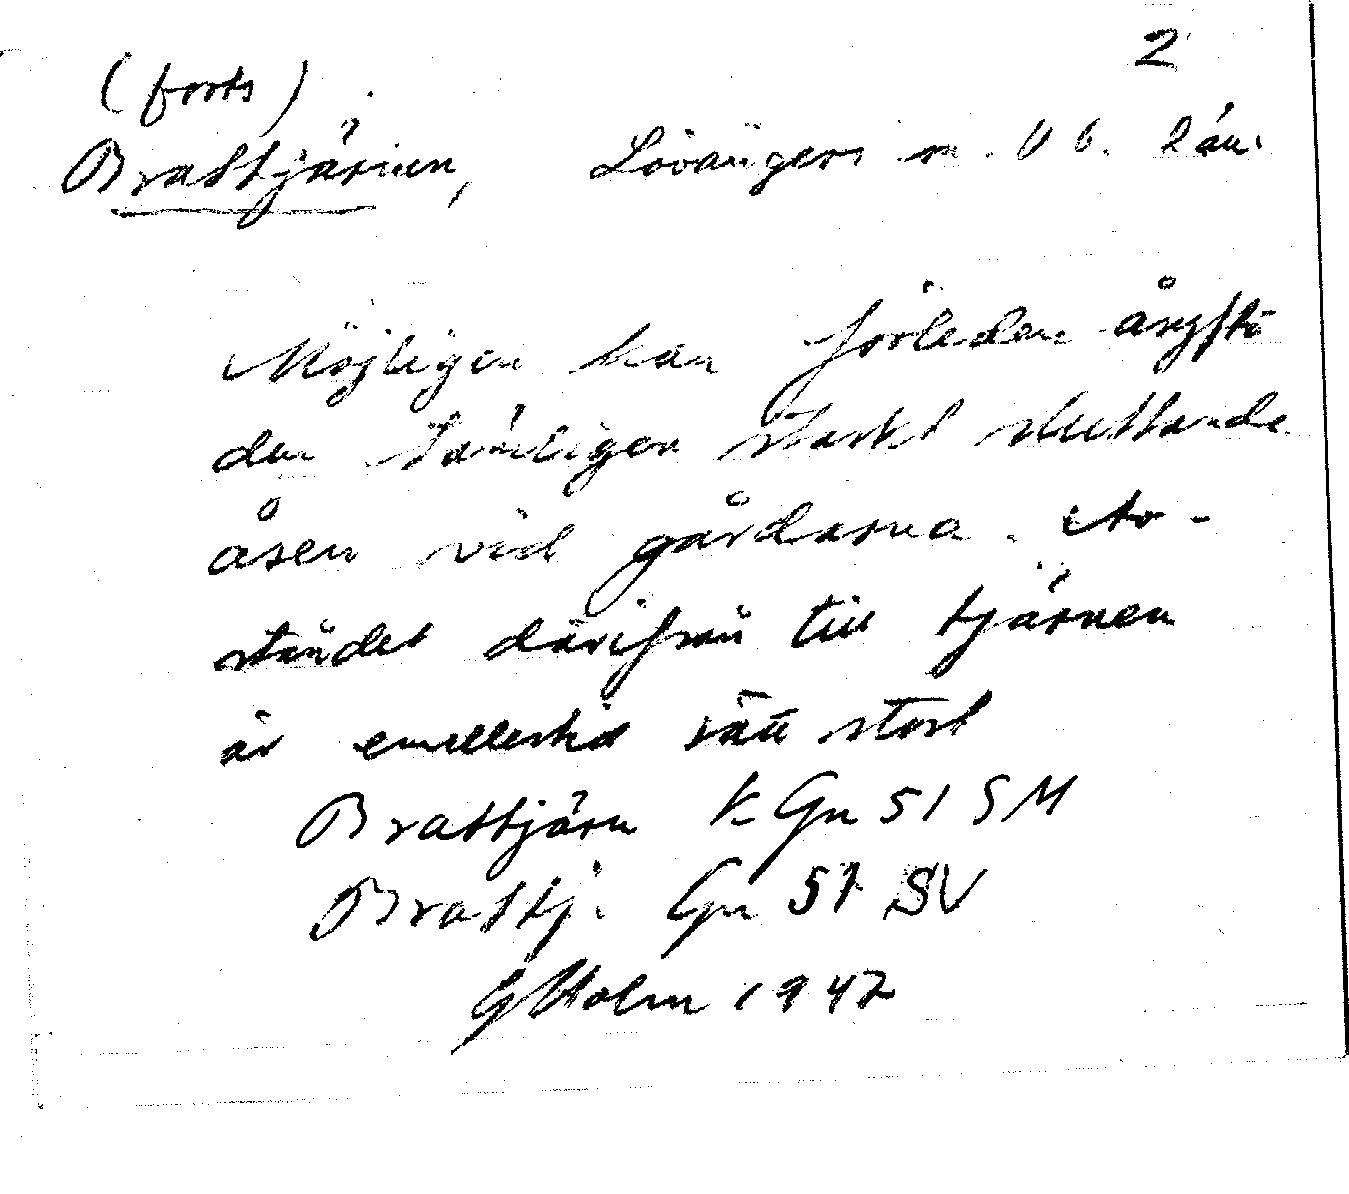 2
(forts)
Brattjärnen, Lövångers sn. Vb. Län.
Möjligen kan förleden åsyfta
den tämligen starkt sluttande
åsen vid gårdarna. Av-
ståndet därifrån till tjärnen
är emellertid rätt stort
Brattjärn k Gn 51 SM
Brattj. Gn 51 SV
G Holm 1942